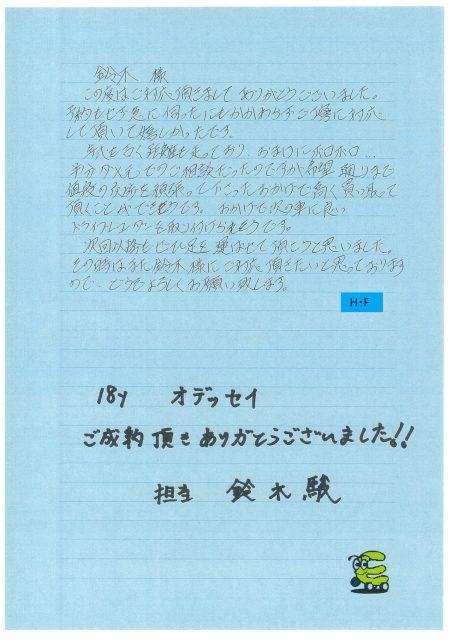 鈴木 様
この度はご対応頂きまして ありがとうございました。
予約もせず急に伺ったにもかかわらず ご丁寧に対応
して頂いて嬉しかったです。
年式も古く距離も走っており、おまけにボロボロ…
半分ダメ元でのご相談だったのですが希望 通りまで
値段の交渉を頑張って下さったおかげで高く買い取って
頂くことができそうです。おかげで次の車に良い
ドライブレコーダーを取り付けられそうです。
次回以降もぜひ足を運ばせて頂こうと思いました。
その時はまた鈴木様にご対応頂きたいと思っております
ので、どうぞよろしくお願い致します。
H・F
18y オデッセイ
ご成約頂き ありがとうございました!!
担当 鈴木 駿